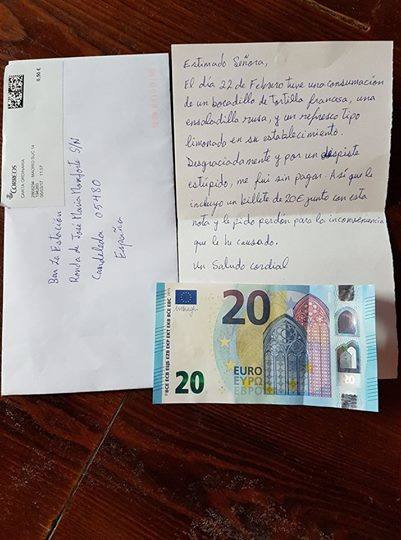 Estimado Señora,
El día 22 de Febrero tuve una consumación
de un bocadillo de Tortilla francesa, una
ensaladilla rusa, y un refresco tipo
limonado en su establecimiento.
Desgraciadamente y por un despiste
estupido, me fui sin pagar. Así que le
incluyo un billete de 20€ junto con esta
nota y le pido perdón para la inconveniencia
que le he causado.
Un Saludo cordial
Bar La Estación
Ronda de José María Monforte S/N
Candeleda 05480
España
Correos
CARTA ORDINARIA
0,50 €
20
20
EURO
ΕΥΡΩ
ЕВРО
20